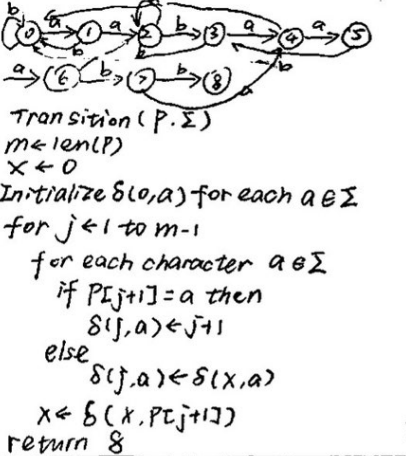 b a a a b a a
0 1 2 3 4 5
b b b
a 6 b 7 b 8 a
Transition(P.Σ)
m←len(P)
x←0
Initialize δ(0,a) for each a∈Σ
for j←1 to m-1
for each character a∈Σ
if P[j+1]=a then
δ(j,a)←j+1
else
δ(j,a)←δ(x,a)
x←δ(x,P[j+1])
return δ